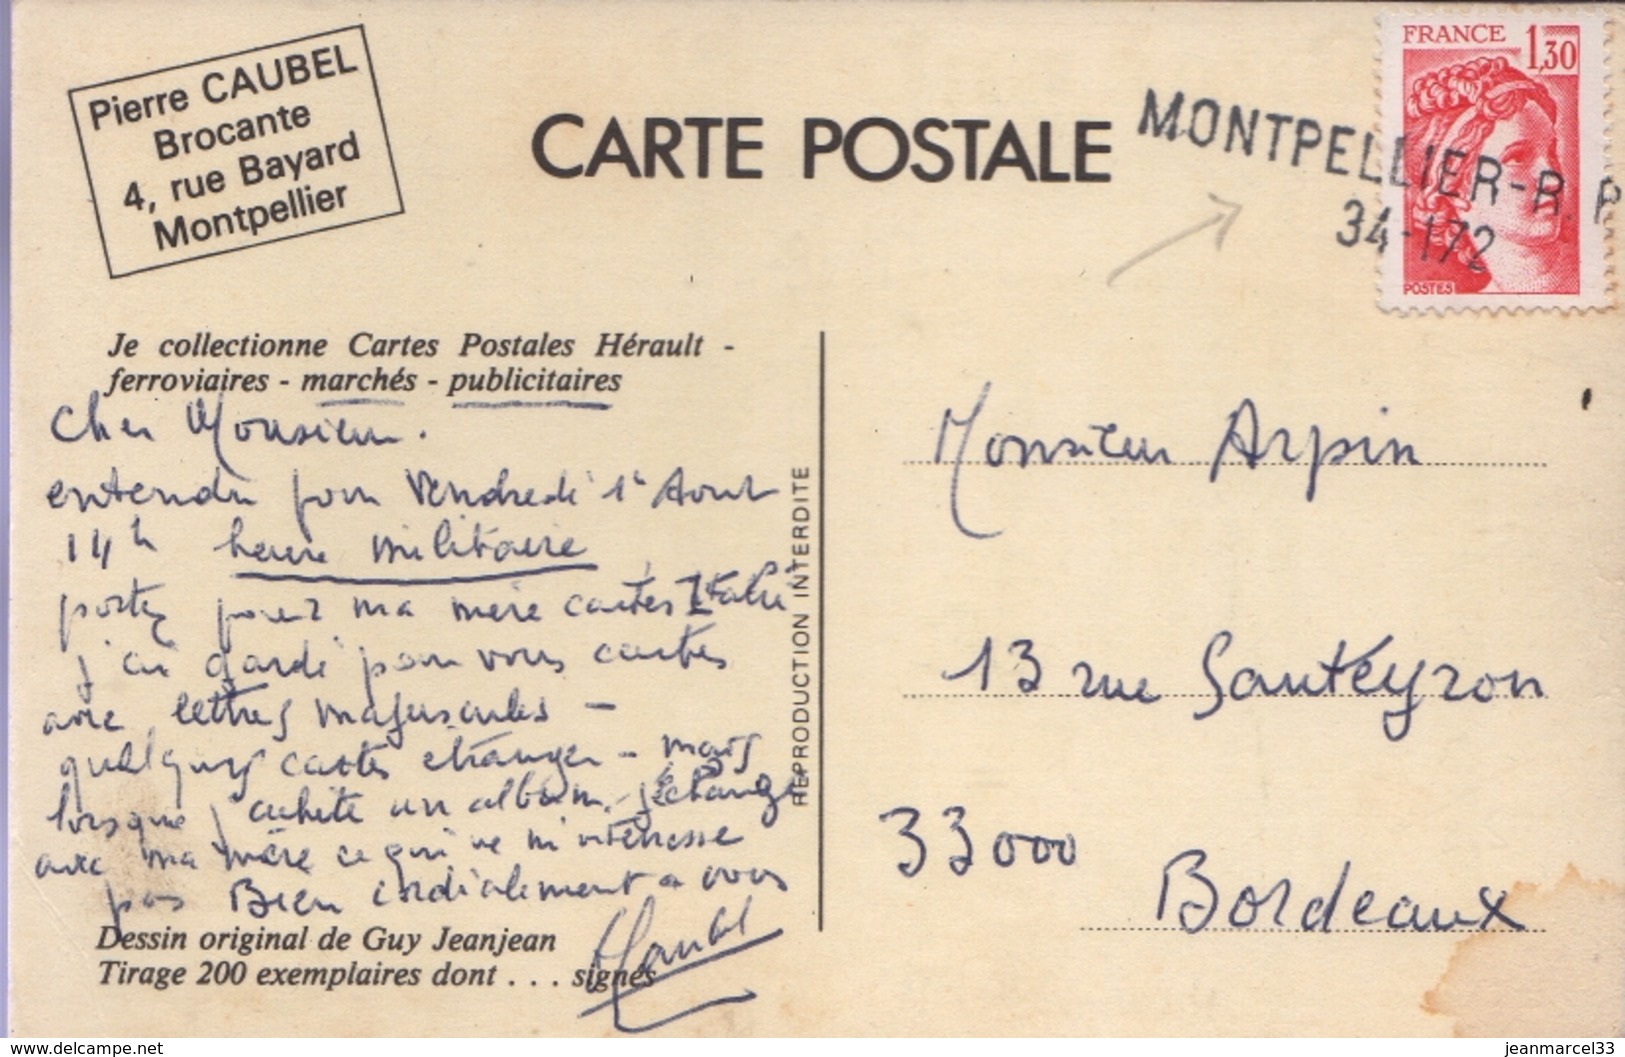 Pierre CAUBEL
Brocante
4, rue Bayard
Montpellier
CARTE POSTALE
FRANCE 1,30
POSTES
MONTPELLIER-R.P
34-172
Je collectionne Cartes Postales Hérault -
ferroviaires - marchés - publicitaires
Cher Monsieur.
entendu pour Vendredi 1er Aout
14h heure militaire
portez pour ma mère cartes Italie
j'ai gardé pour vous cartes
avec lettres majuscules -
quelques cartes etranger - mais
lorsque j'achète un album j'échange
avec ma mère ce qui ne m'intéresse
pas Bien cordialement a vous
Caubel
Dessin original de Guy Jeanjean
Tirage 200 exemplaires dont . . . signés
REPRODUCTION INTERDITE
Monsieur Arpin
13 rue Sautéyron
33000
Bordeaux
www.delcampe.net
jeanmarcel33